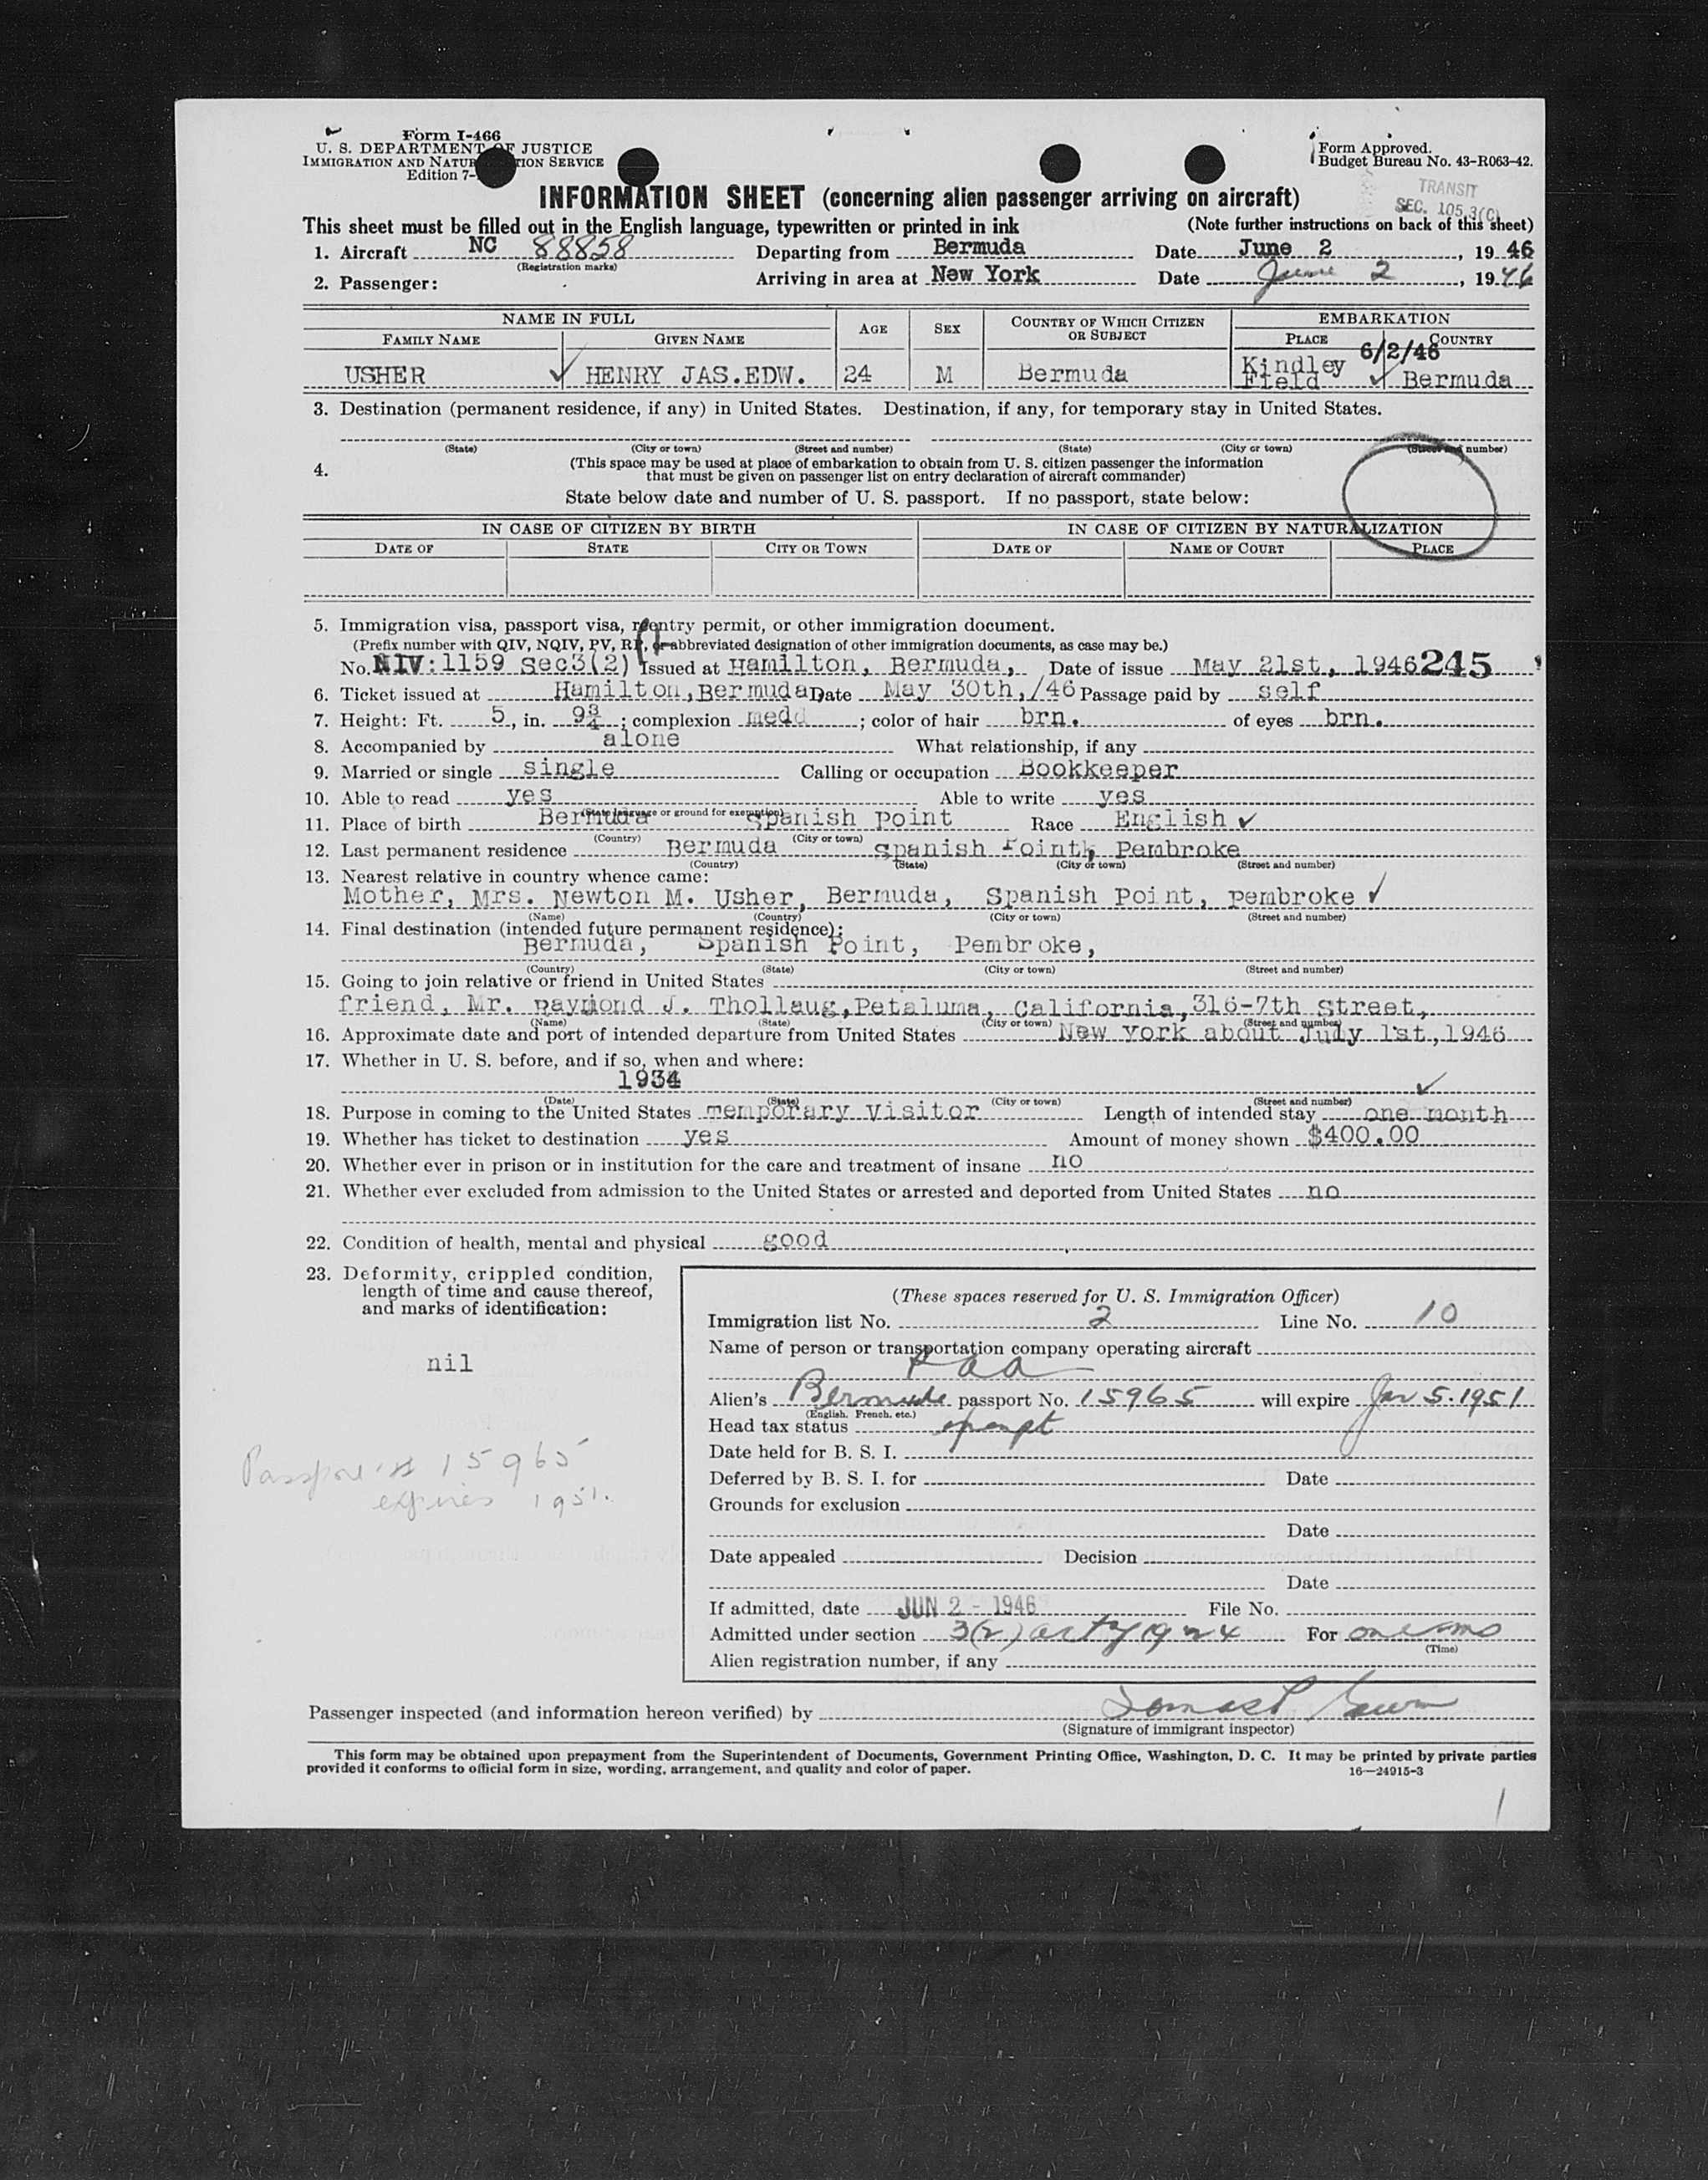 Form I-466
U. S. DEPARTMENT OF JUSTICE
IMMIGRATION AND NATURALIZATION SERVICE
Edition 7-
Form Approved.
Budget Bureau No. 43-R063-42.
TRANSIT
SEC. 105.3(C)
INFORMATION SHEET (concerning alien passenger arriving on aircraft)
This sheet must be filled out in the English language, typewritten or printed in ink (Note further instructions on back of this sheet)
1. Aircraft NC 88858 Departing from Bermuda Date June 2, 1946
(Registration marks)
2. Passenger: Arriving in area at New York Date June 2, 1946
NAME IN FULL AGE SEX COUNTRY OF WHICH CITIZEN OR SUBJECT EMBARKATION
FAMILY NAME GIVEN NAME PLACE COUNTRY
6/2/46
USHER HENRY JAS.EDW. 24 M Bermuda Kindley Field Bermuda
3. Destination (permanent residence, if any) in United States. Destination, if any, for temporary stay in United States.
(State) (City or town) (Street and number) (State) (City or town) (Street and number)
4. (This space may be used at place of embarkation to obtain from U. S. citizen passenger the information
that must be given on passenger list on entry declaration of aircraft commander)
State below date and number of U. S. passport. If no passport, state below:
IN CASE OF CITIZEN BY BIRTH IN CASE OF CITIZEN BY NATURALIZATION
DATE OF STATE CITY OR TOWN DATE OF NAME OF COURT PLACE
5. Immigration visa, passport visa, reentry permit, or other immigration document.
(Prefix number with QIV, NQIV, PV, RP, or abbreviated designation of other immigration documents, as case may be.)
No. NIV:1159 Sec3(2) Issued at Hamilton, Bermuda, Date of issue May 21st, 1946 245
6. Ticket issued at Hamilton, Bermuda Date May 30th,/46 Passage paid by self
7. Height: Ft. 5, in. 9 3/4; complexion med; color of hair brn. of eyes brn.
8. Accompanied by alone What relationship, if any
9. Married or single single Calling or occupation Bookkeeper
10. Able to read yes Able to write yes
(State language or ground for exemption)
11. Place of birth Bermuda Spanish Point Race English
(Country) (City or town)
12. Last permanent residence Bermuda Spanish Point, Pembroke
(Country) (State) (City or town) (Street and number)
13. Nearest relative in country whence came:
Mother, Mrs. Newton M. Usher, Bermuda, Spanish Point, Pembroke
(Name) (Country) (City or town) (Street and number)
14. Final destination (intended future permanent residence):
Bermuda, Spanish Point, Pembroke,
(Country) (State) (City or town) (Street and number)
15. Going to join relative or friend in United States
friend, Mr. Raymond J. Thollaug, Petaluma, California, 316-7th Street,
(Name) (State) (City or town) (Street and number)
16. Approximate date and port of intended departure from United States New York about July 1st, 1946
17. Whether in U. S. before, and if so, when and where:
1934
(Date) (State) (City or town) (Street and number)
18. Purpose in coming to the United States Temporary Visitor Length of intended stay one month
19. Whether has ticket to destination yes Amount of money shown $400.00
20. Whether ever in prison or in institution for the care and treatment of insane no
21. Whether ever excluded from admission to the United States or arrested and deported from United States no
22. Condition of health, mental and physical good
23. Deformity, crippled condition,
length of time and cause thereof,
and marks of identification:
nil
Passport # 15965
expires 1951.
(These spaces reserved for U. S. Immigration Officer)
Immigration list No. 2 Line No. 10
Name of person or transportation company operating aircraft
PAA
Alien's Bermuda passport No. 15965 will expire Jan 5. 1951
(English, French, etc.)
Head tax status exempt
Date held for B. S. I.
Deferred by B. S. I. for Date
Grounds for exclusion
Date
Date appealed Decision
Date
If admitted, date JUN 2 - 1946 File No.
Admitted under section 3(2) act of 1924 For one mo
(Time)
Alien registration number, if any
Passenger inspected (and information hereon verified) by
(Signature of immigrant inspector)
This form may be obtained upon prepayment from the Superintendent of Documents, Government Printing Office, Washington, D. C. It may be printed by private parties
provided it conforms to official form in size, wording, arrangement, and quality and color of paper. 16—24915-3